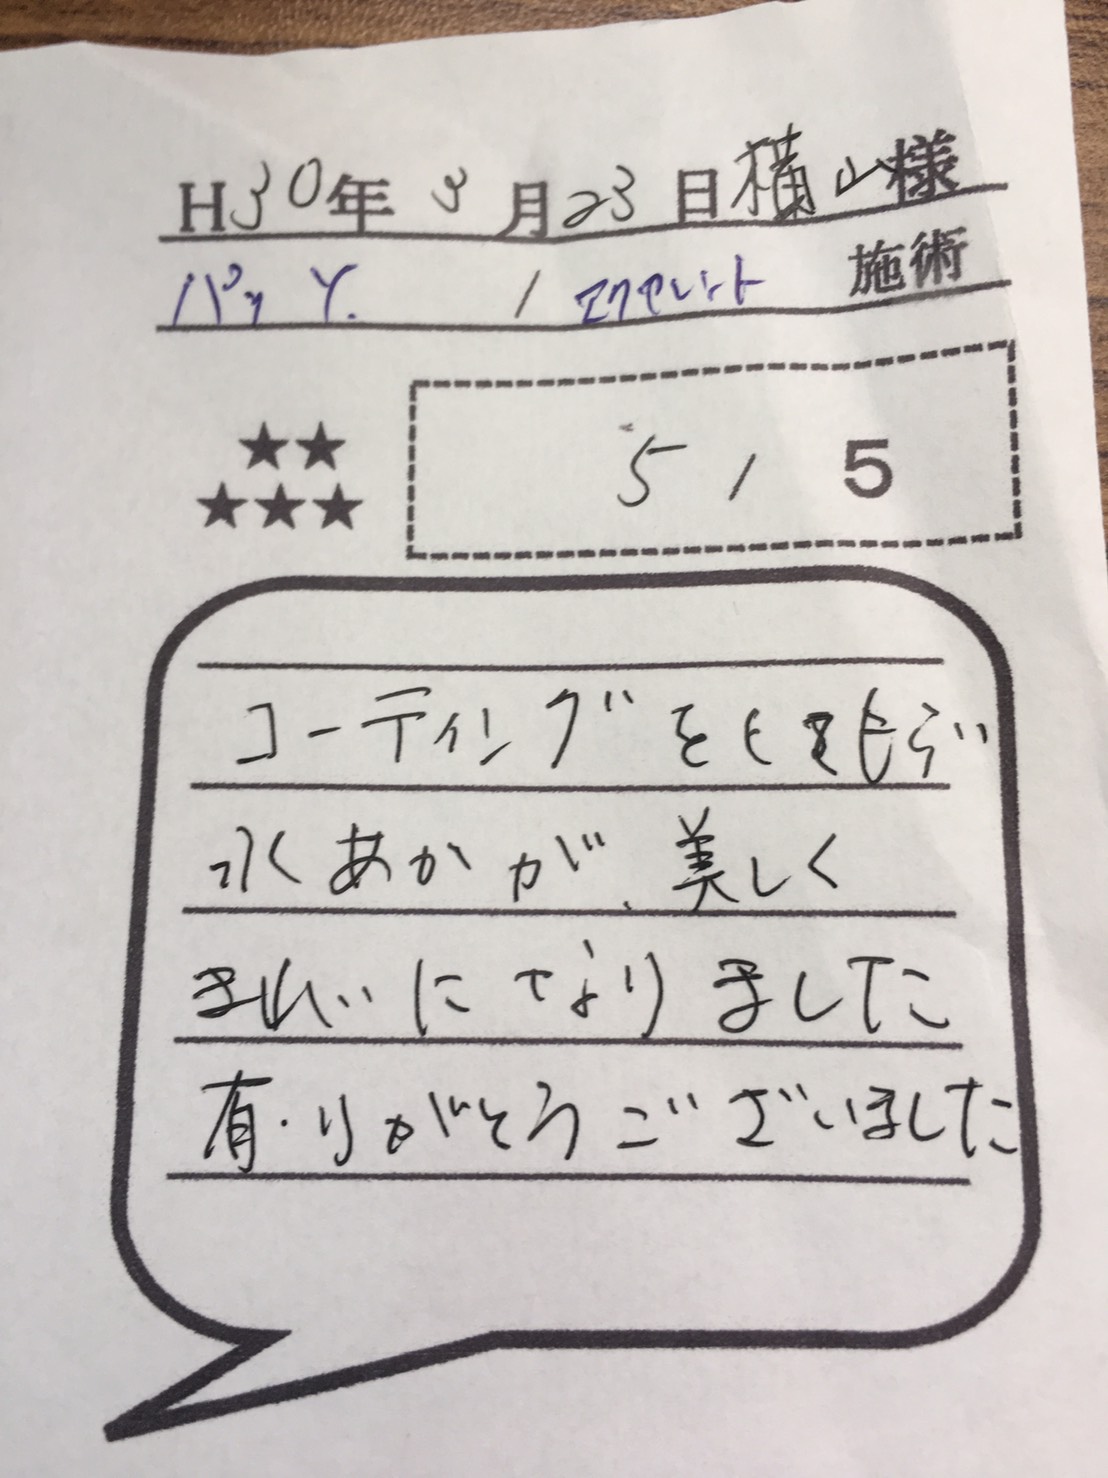 H30年3月23日横山様
パッソ / エクセレント 施術
★★
★★★
5 / 5
コーティングをしてもらい
水あかが、美しく
きれいになりました
有りがとうございました